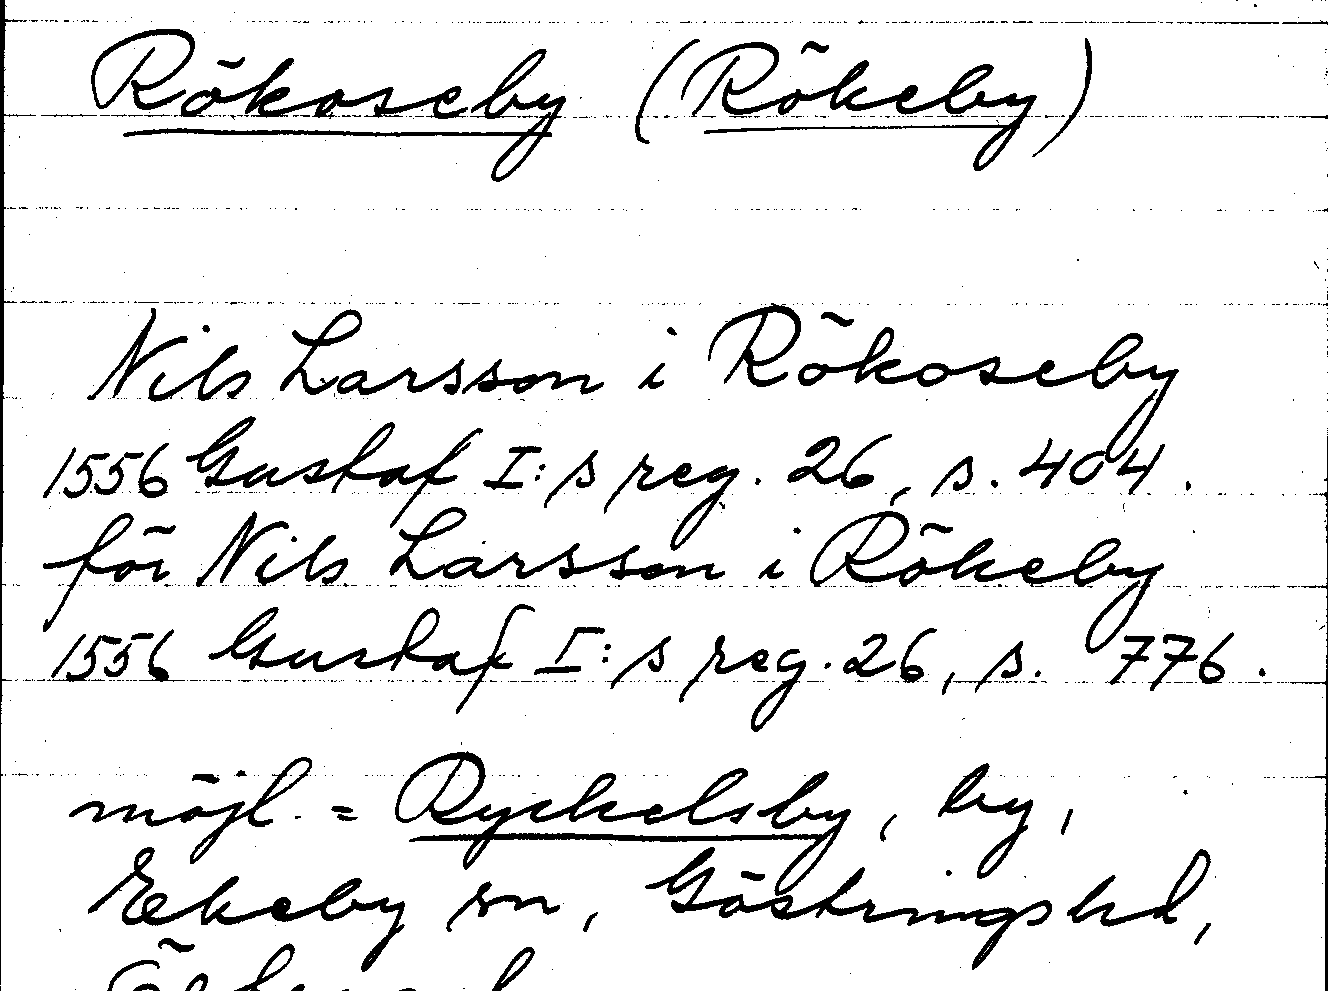 Rökoseby (Rökeby)
Nils Larsson i Rökoseby
1556 Gustaf I:s reg. 26, s. 404.
för Nils Larsson i Rökeby
1556 Gustaf I:s reg. 26, s. 776.
möjl. = Ryckelsby, by,
Ekeby sn, Göstringshd,